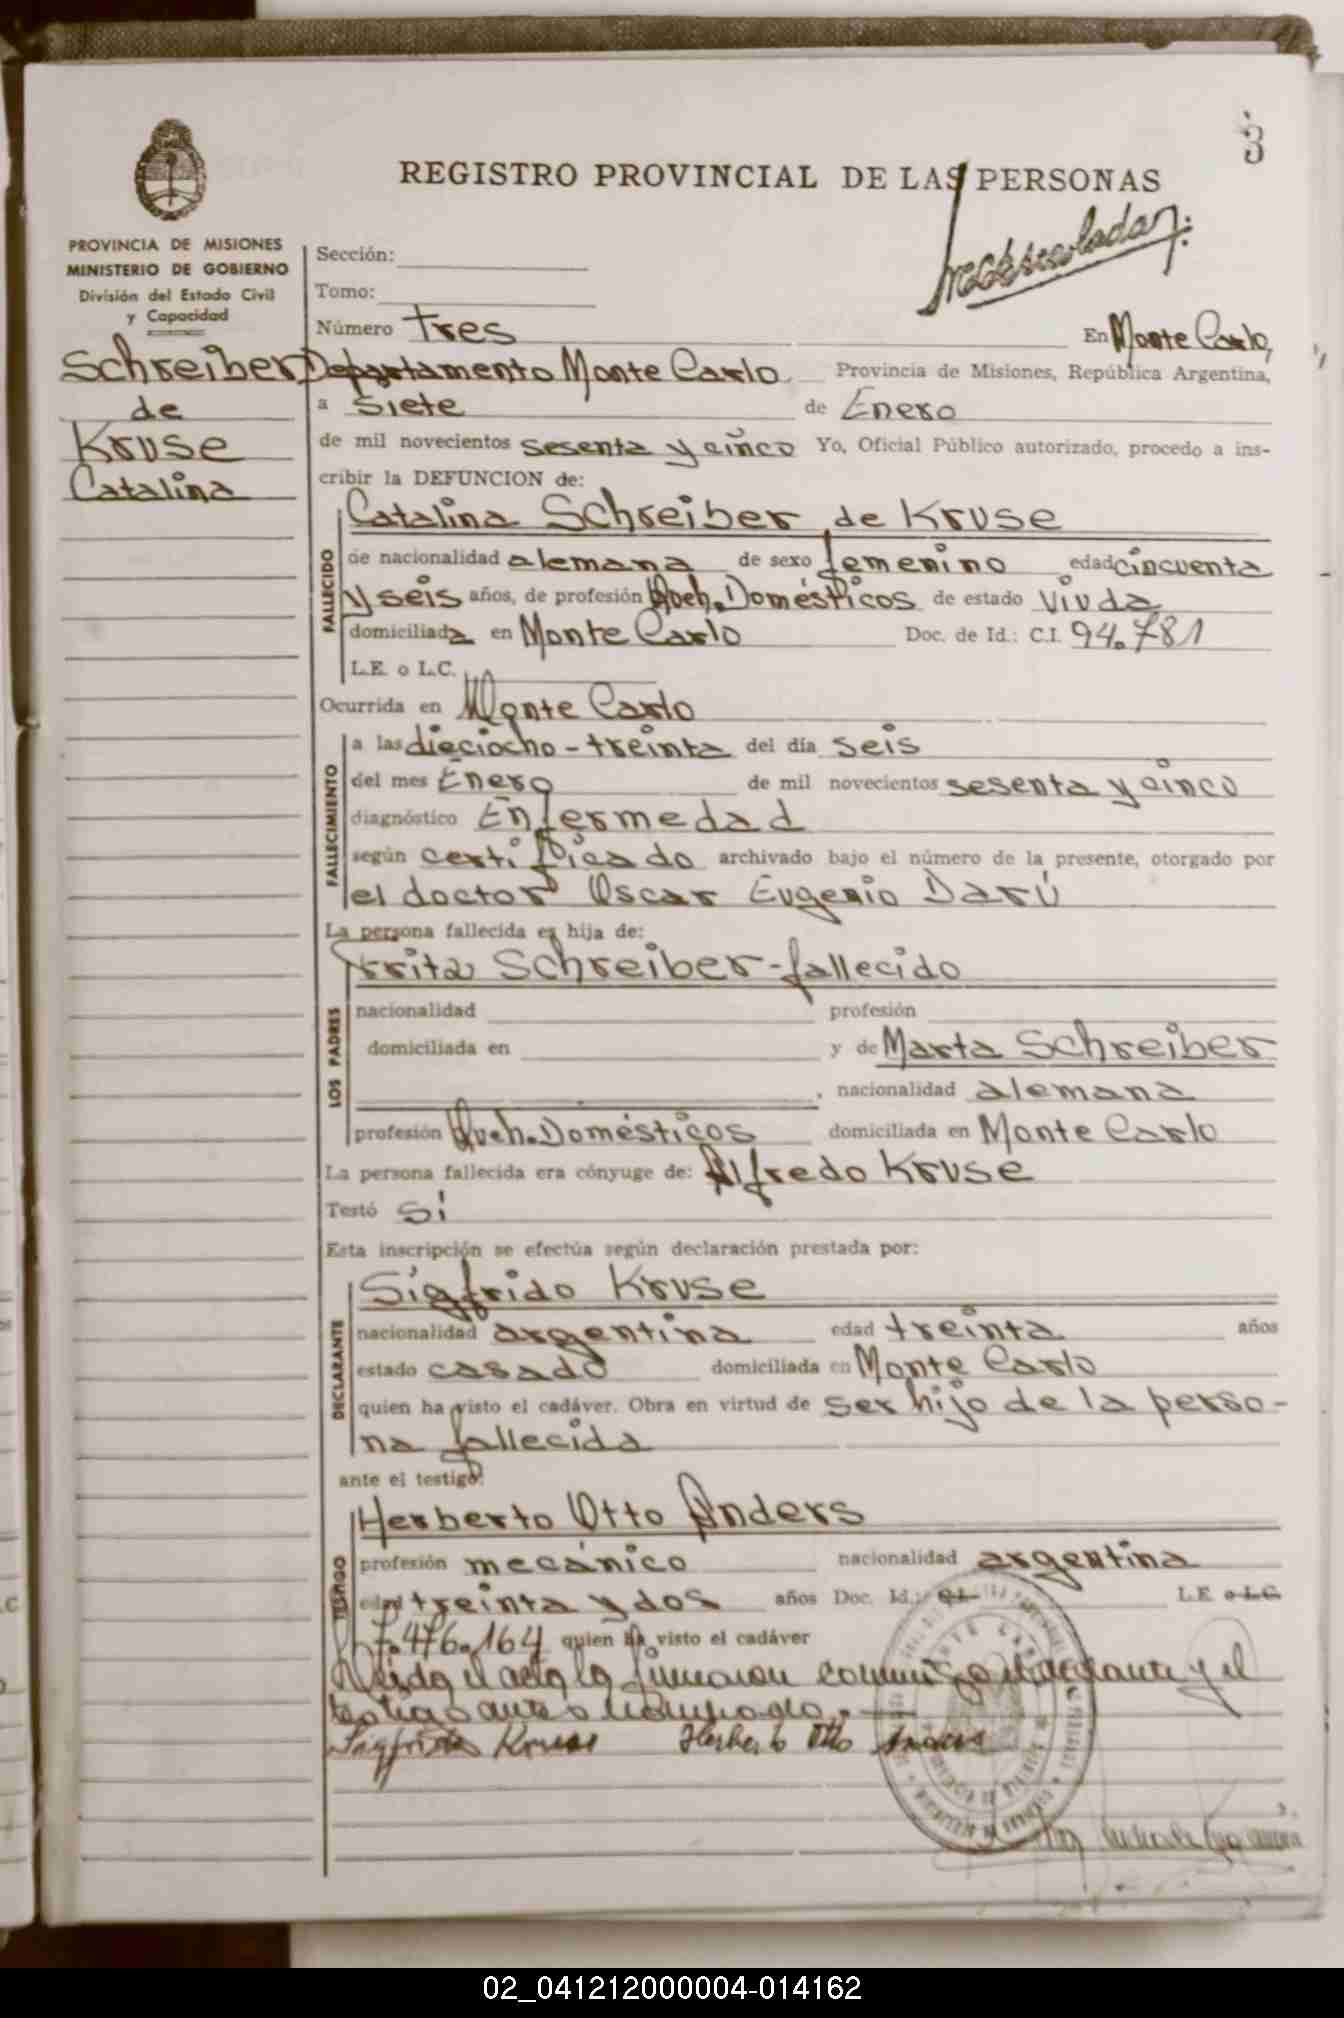 3
REGISTRO PROVINCIAL DE LAS PERSONAS
PROVINCIA DE MISIONES
MINISTERIO DE GOBIERNO
División del Estado Civil
y Capacidad
Schreiber
de
Kruse
Catalina
Sección:
Tomo:
Número tres En Monte Carlo,
Departamento Monte Carlo Provincia de Misiones, República Argentina,
a siete de Enero
de mil novecientos sesenta y cinco Yo, Oficial Público autorizado, procedo a ins-
cribir la DEFUNCION de:
FALLECIDO
Catalina Schreiber de Kruse
de nacionalidad alemana de sexo femenino edad cincuenta
y seis años, de profesión Queh. Domésticos de estado viuda
domiciliada en Monte Carlo Doc. de Id.: C.I. 94.781
L.E. o L.C.
Ocurrida en Monte Carlo
FALLECIMIENTO
a las dieciocho-treinta del día seis
del mes Enero de mil novecientos sesenta y cinco
diagnóstico Enfermedad
según certificado archivado bajo el número de la presente, otorgado por
el doctor Oscar Eugenio Darú
La persona fallecida es hija de:
LOS PADRES
Frita Schreiber-fallecido
nacionalidad profesión
domiciliada en y de Marta Schreiber
, nacionalidad alemana
profesión Queh. Domésticos domiciliada en Monte Carlo
La persona fallecida era cónyuge de: Alfredo Kruse
Testó si
Esta inscripción se efectúa según declaración prestada por:
DECLARANTE
Sigfrido Kruse
nacionalidad argentina edad treinta años
estado casado domiciliada en Monte Carlo
quien ha visto el cadáver. Obra en virtud de ser hijo de la perso-
na fallecida
ante el testigo:
TESTIGO
Herberto Otto Anders
profesión mecánico nacionalidad argentina
edad treinta y dos años Doc. Id.: C.I. L.E o L.C.
7.476.164 quien ha visto el cadáver
Leida el acta la firmaron conmigo el declarante y el
testigo
Kruse Herberto Otto Anders
02_041212000004-014162